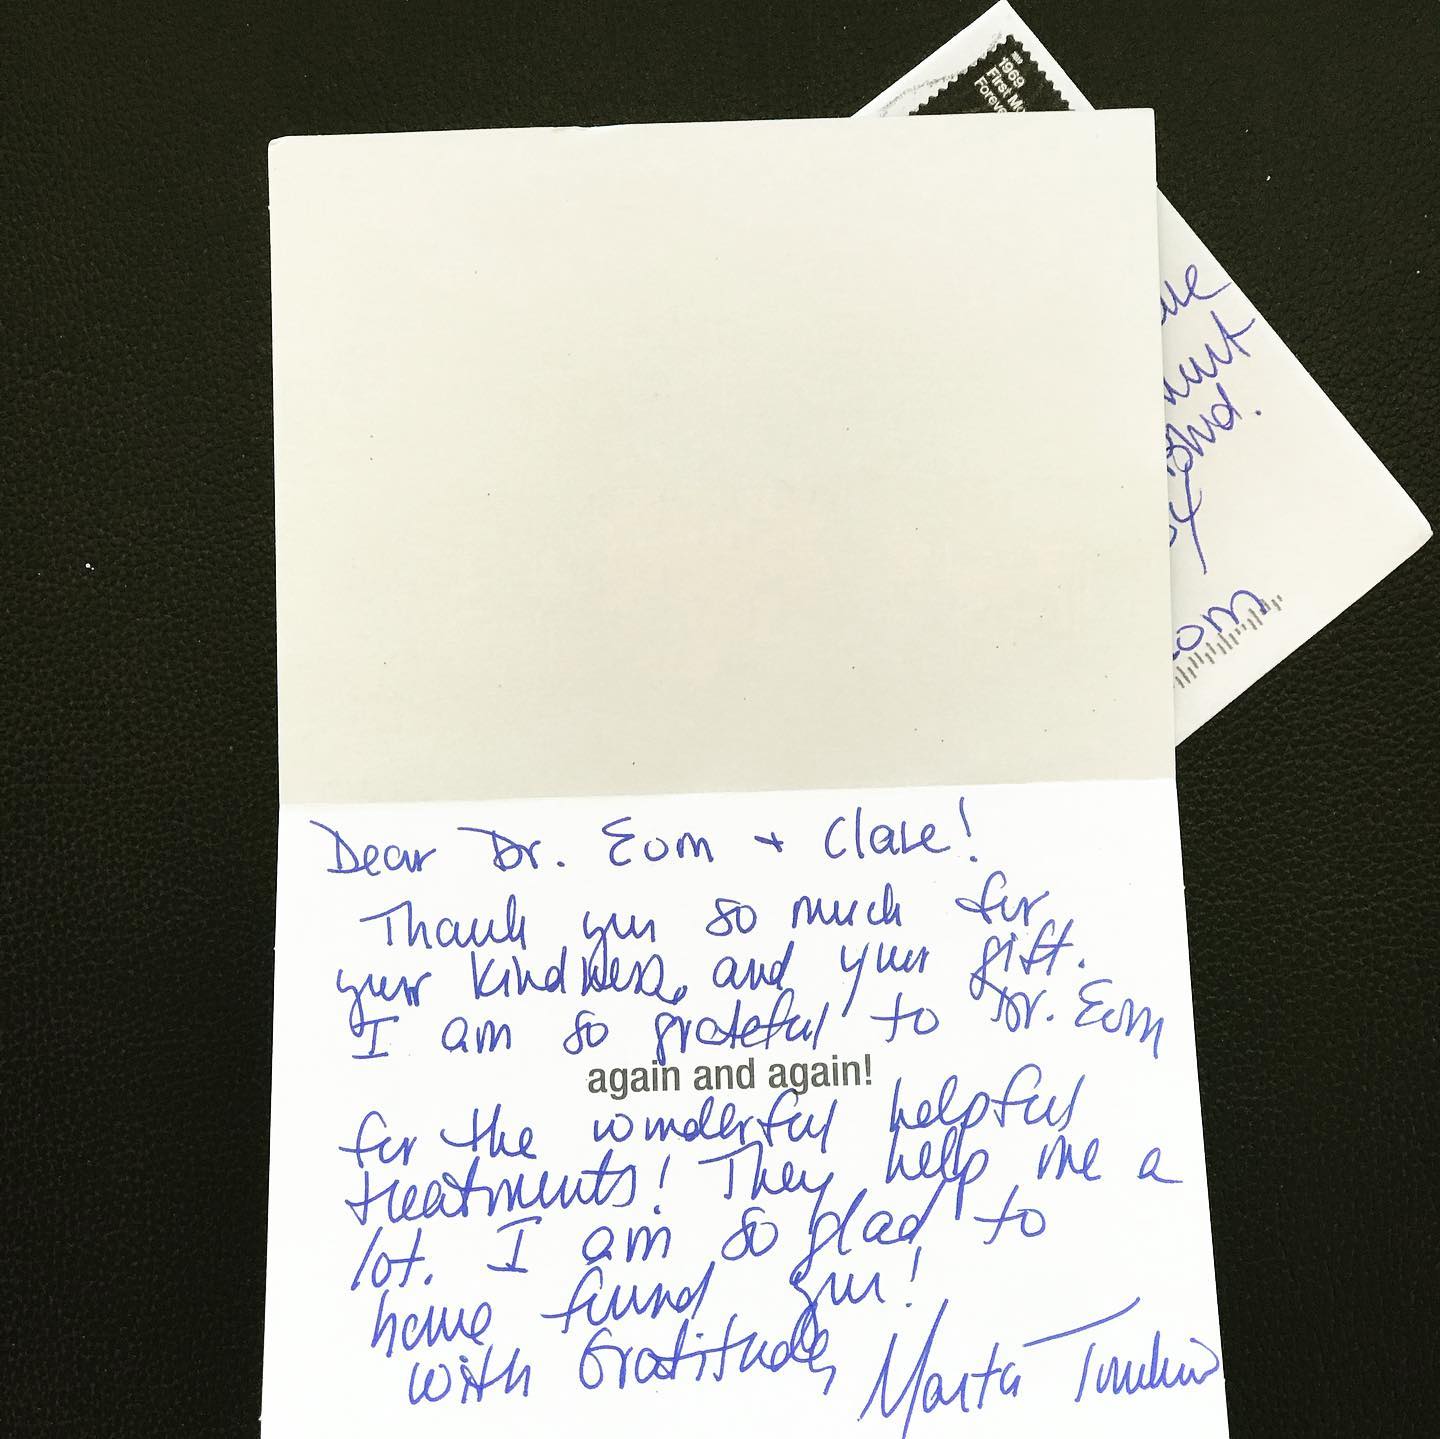 1969
First Mo
Foreve
Dear Dr. Eom + Clare!
Thank you so much for
your kindness, and your gift.
I am so grateful to Dr. Eom
again and again!
for the wonderful helpful
treatments! They help me a
lot. I am so glad to
have found you!
with Gratitude,
Marta